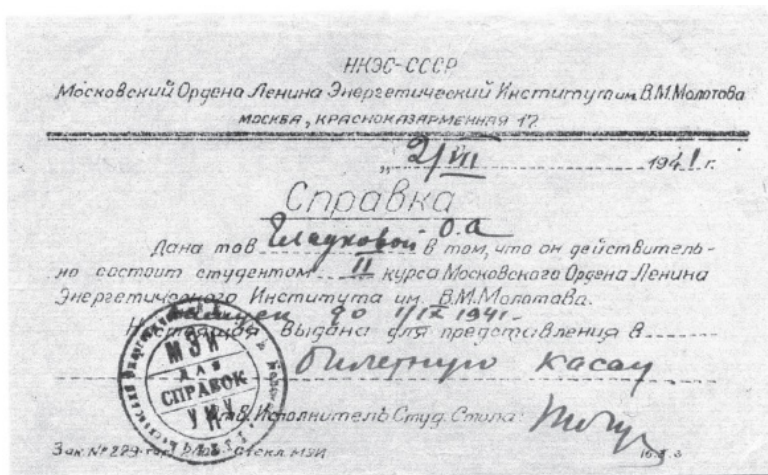 НКЭС-СССР
Московский Ордена Ленина Энергетический Институт им. В.М.Молотова
МОСКВА, КРАСНОКАЗАРМЕННАЯ 17.
„2/VII 1941 г.
Справка
Дана тов О.А
в том, что он действитель-
но состоит студентом II курса Московского Ордена Ленина
Энергетического Института им. В.М.Молотова.
до 1/IX 1941.
Настоящая выдана для представления в
билетную кассу
Отв. Исполнитель Студ. Стола:
МЭИ
ДЛЯ
СПРАВОК
УНУ
Зак. № 229